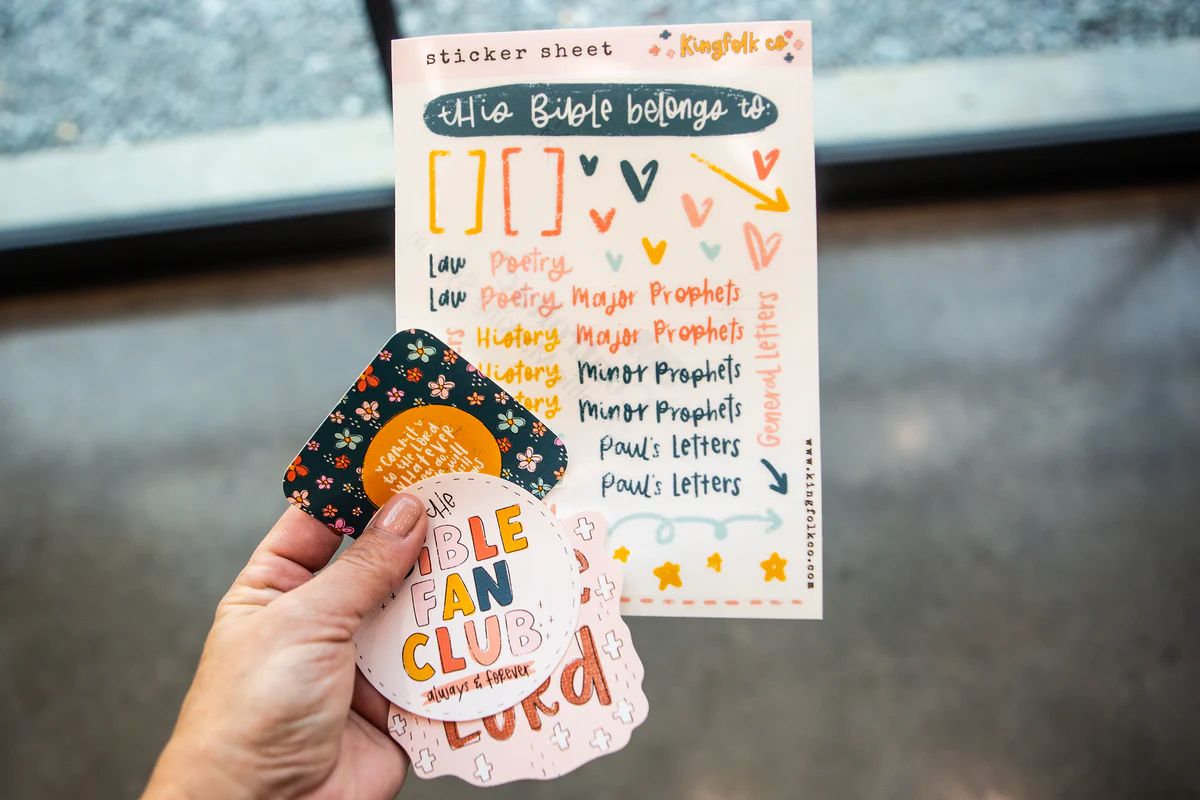 sticker sheet
Kingfolk co
this Bible belongs to:
Law Poetry
Law Poetry Major Prophets
History Major Prophets
History Minor Prophets
Minor Prophets
Paul's Letters
Paul's Letters
General Letters
www.kingfolkco.com
commit
to the LORD
WHATEVER
the
FAN
CLUB
always & forever
LORD